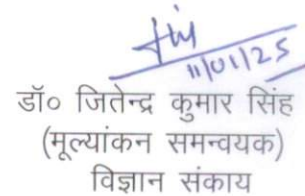 11/01/25
डॉ० जितेन्द्र कुमार सिंह
(मूल्यांकन समन्वयक)
विज्ञान संकाय